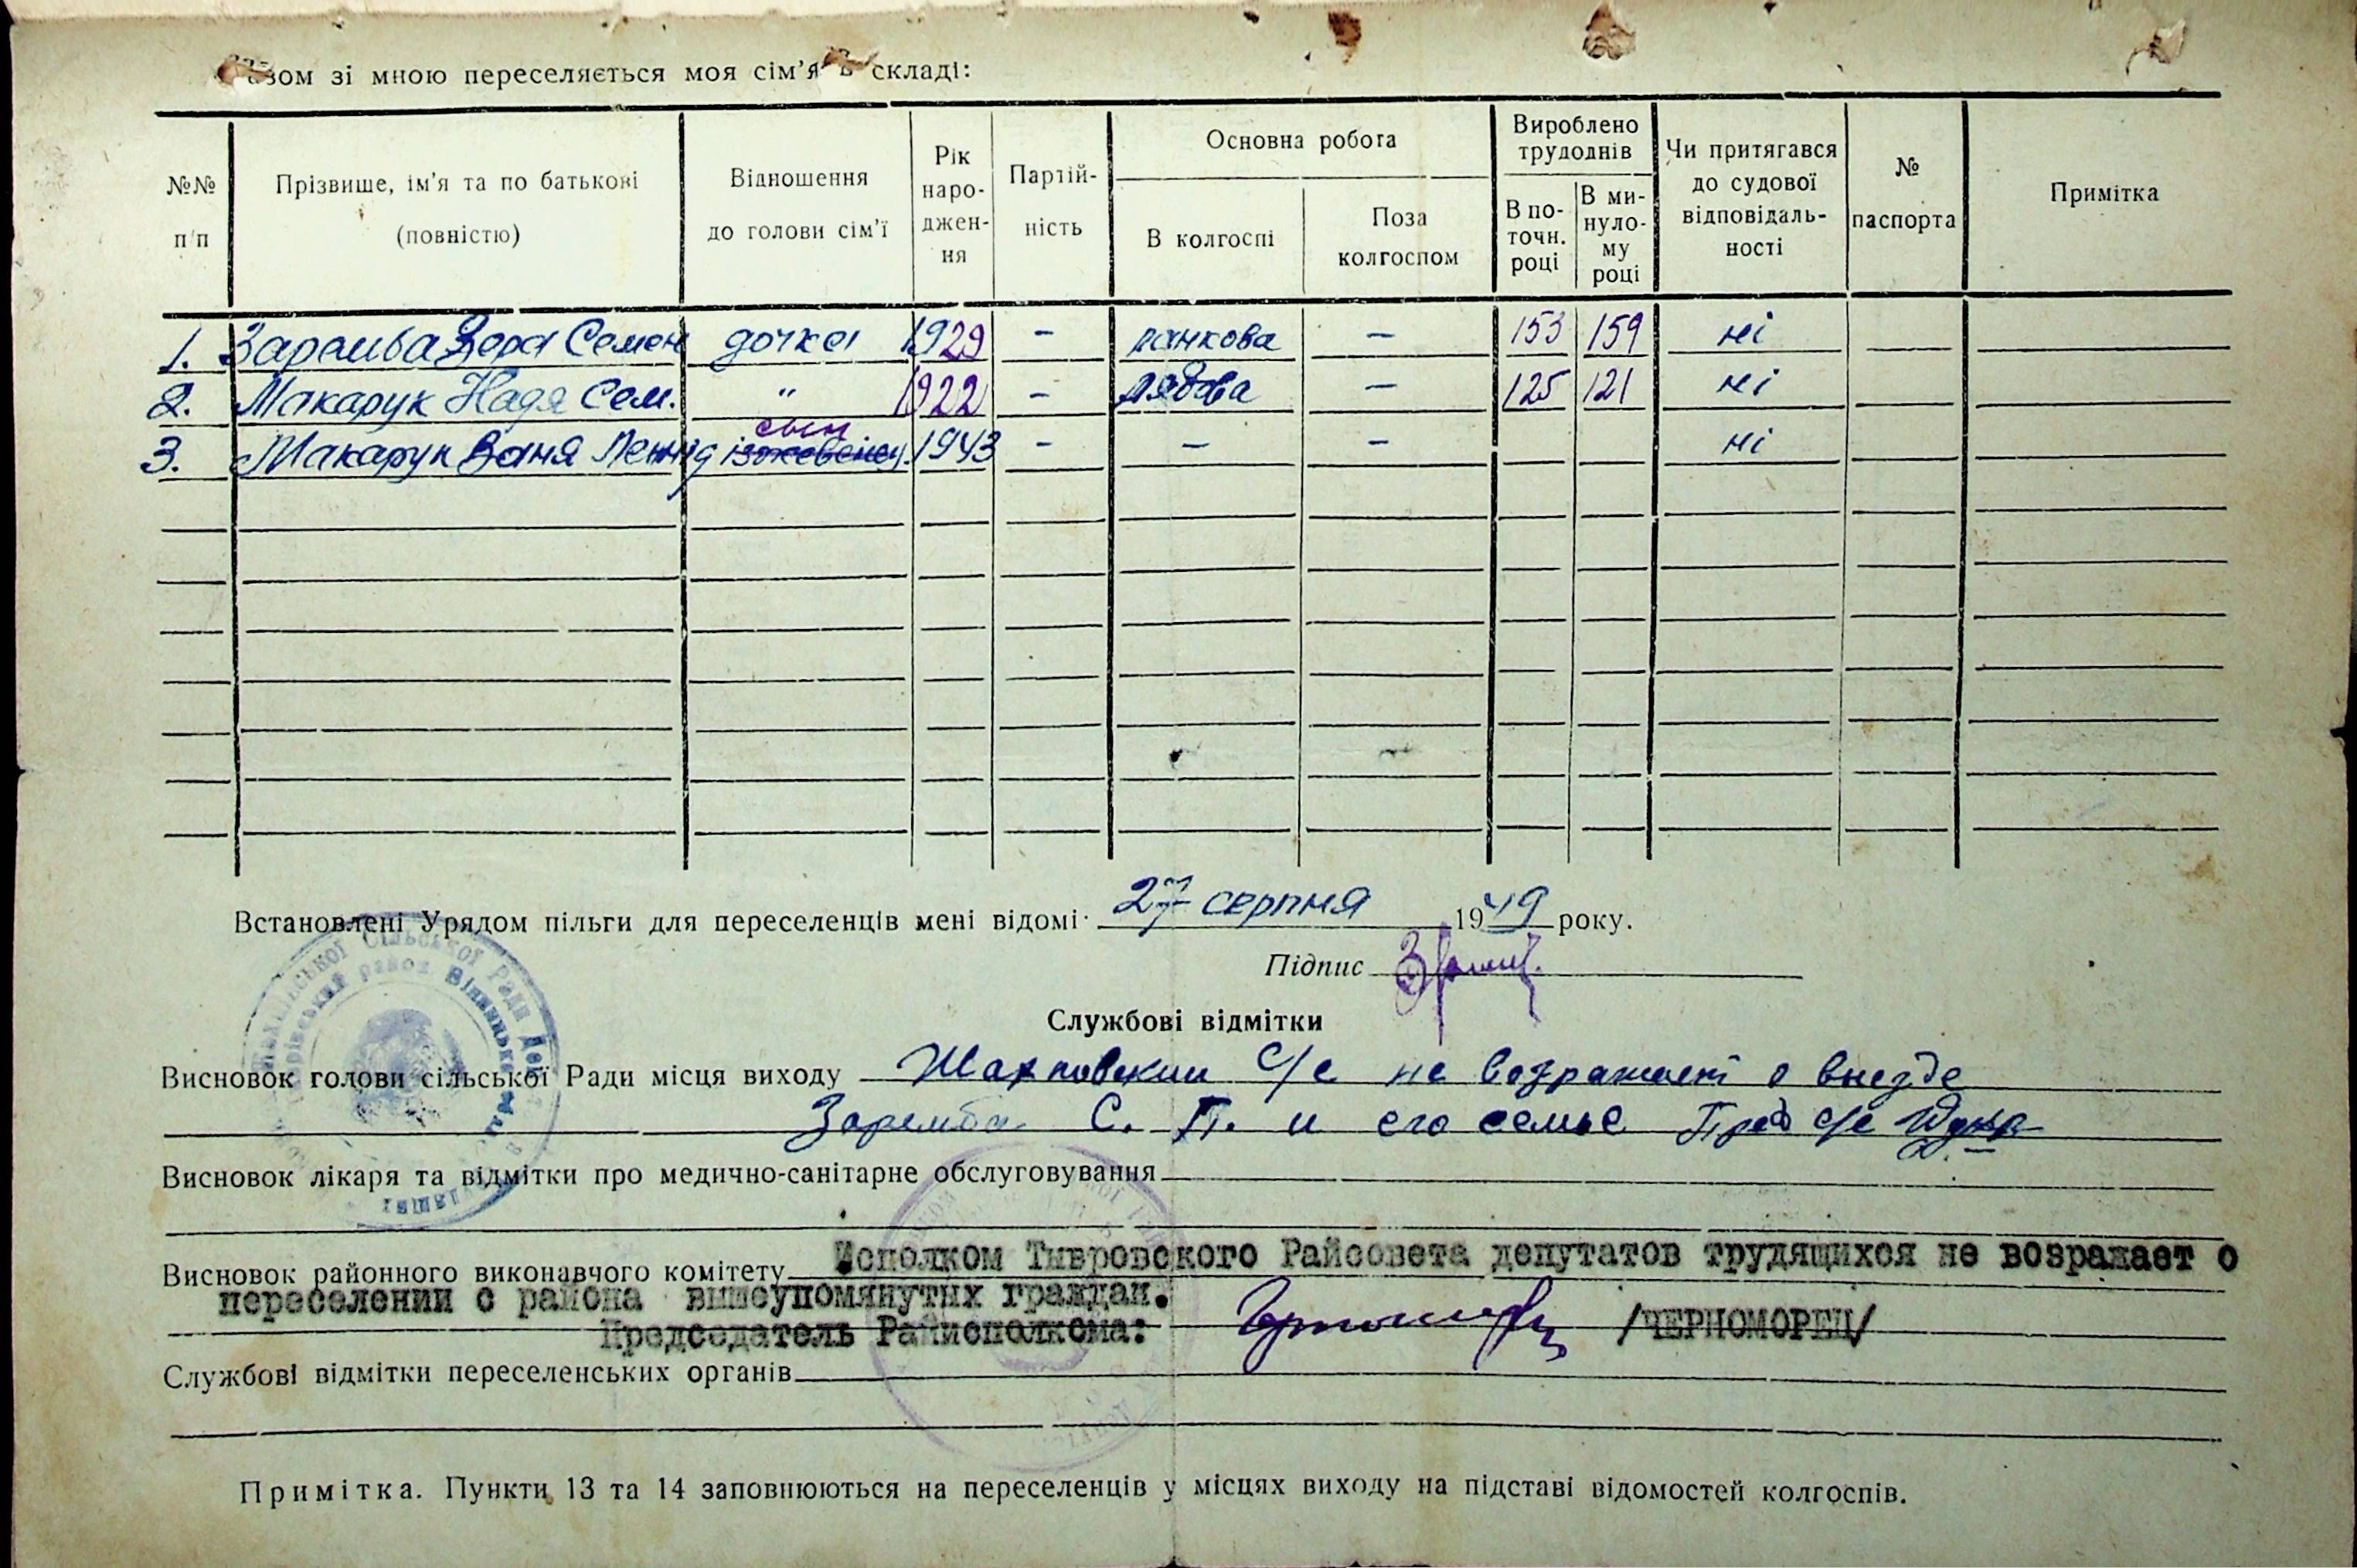 Разом зі мною переселяється моя сім'я в складі:
№№ п/п | Прізвище, ім'я та по батькові (повністю) | Відношення до голови сім'ї | Рік народження | Партійність | Основна робота | Вироблено трудоднів | Чи притягався до судової відповідальності | № паспорта | Примітка
В колгоспі | Поза колгоспом | В поточн. році | В минулому році
1. Заремба Вера Семен дочка 1929 – ланкова – 153 159 ні
2. Макарук Надя Сем. " 1922 – рядова – 125 121 ні
сын
3. Макарук Ваня 1943 – – – ні
Встановлені Урядом пільги для переселенців мені відомі 27 серпня 1949 року.
Підпис
Службові відмітки
Висновок голови сільської Ради місця виходу с/с не возражает о выезде
Заремба С. П. и его семье Пред с/с
Висновок лікаря та відмітки про медично-санітарне обслуговування
Висновок районного виконавчого комітету Исполком Тывровского Райсовета депутатов трудящихся не возражает о
переселении с района вышеупомянутых граждан.
Председатель Райисполкома: /ЧЕРНОМОРЕЦ/
Службові відмітки переселенських органів
Примітка. Пункти 13 та 14 заповнюються на переселенців у місцях виходу на підставі відомостей колгоспів.